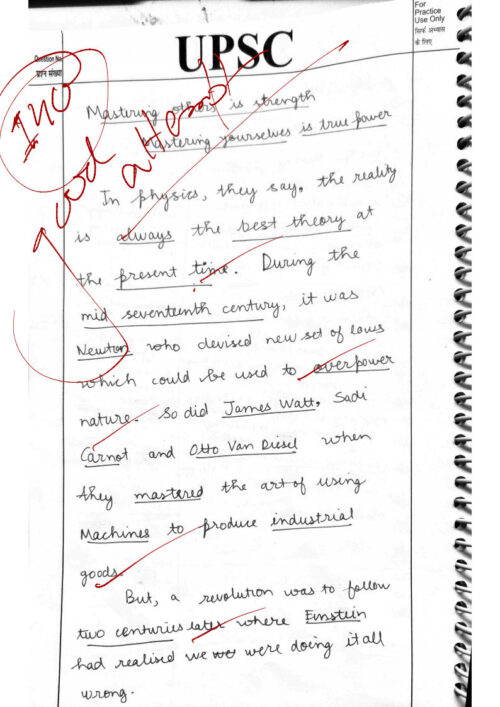 For
Practice
Use Only
सिर्फ अभ्यास
के लिए
Question No.
प्रश्न संख्या
UPSC
Good
attempt
Mastering others is strength
Mastering yourselves is true power
In physics, they say, the reality
is always the best theory at
the present time. During the
mid seventeenth century, it was
Newton who devised new set of laws
which could be used to overpower
nature. So did James Watt, Sadi
Carnot and Otto Van Diesel when
they mastered the art of using
Machines to produce industrial
goods.
But, a revolution was to follow
two centuries later where Einstein
had realised we we were doing it all
wrong.